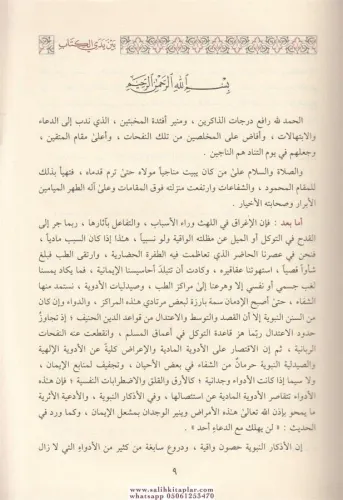 بين يدي الكتاب
بسم الله الرحمن الرحيم
الحمد لله رافع درجات الذاكرين ، ومنير أفئدة المخبتين ، الذي ندب إلى الدعاء
والابتهالات ، وأفاض على المخلصين من تلك النفحات ، وأعلىٰ مقام المتقين ،
وجعلهم في يوم التناد هم الناجين .
والصلاة والسلام علىٰ من كان يبيت مناجياً مولاه حتىٰ ترم قدماه ، فتهيأ بذلك
للمقام المحمود ، والشفاعات وارتفعت منزلته فوق المقامات وعلىٰ آله الطهر الميامين
الأبرار وصحابته الأخيار .
أما بعد : فإن الإغراق في اللهث وراء الأسباب ، والتفاعل بآثارها ، ربما جر إلى
القدح في التوكل أو الميل عن مظلته الواقية ولو نسبياً ، هٰذا إذا كان السبب مادياً ،
فنحن في عصرنا الحاضر الذي تعاظمت فيه الطفرة الحضارية ، وارتقى الطب فبلغ
شأواً قصياً ، استهوتنا عقاقيره ، وكادت أن تتبلد أحاسيسنا الإيمانية ، فما يكاد يمسنا
لغب جسمي أو نفسي إلا وهرعنا إلىٰ مراكز الطب ، وصيدليات الأدوية ، نستمد منها
الشفاء ، حتىٰ أصبح الإدمان سمة بارزة لبعض مرتادي هذه المراكز ، والدواء وإن كان
من السنن النبوية إلا أن القصد والتوسط والاعتدال من قواعد الدين الحنيف ، إذ تجاوزُ
حدود الاعتدال ربما هز قاعدة التوكل في أعماق المسلم ، وانقطعت عنه النفحات
الربانية ، ثم إن الاقتصار على الأدوية المادية والإعراض كلية عن الأدوية الإلهية
والصيدلية النبوية حرمانٌ من الشفاء في بعض الأحيان ، وتجفيف لمنابع الإيمان ،
ولا سيما إذا كانت الأدواء وجدانية ؛ كالأرق والقلق والاضطرابات النفسية ؛ فإن هذه
الأدواء تتقاصر الأدوية المادية عن استئصالها ، وفي الأذكار النبوية ، والأدعية الأثرية
ما يمحو بإذن الله تعالىٰ هذه الأمراض وينير الوجدان بمشعل الإيمان ، وكما ورد في
الحديث : « لن يهلك مع الدعاء أحد » .
إن الأذكار النبوية حصون واقية ، ودروع سابغة من كثير من الأدواء التي لا تزال
٩
www.salihkitaplar.com
whatsapp 05061253470